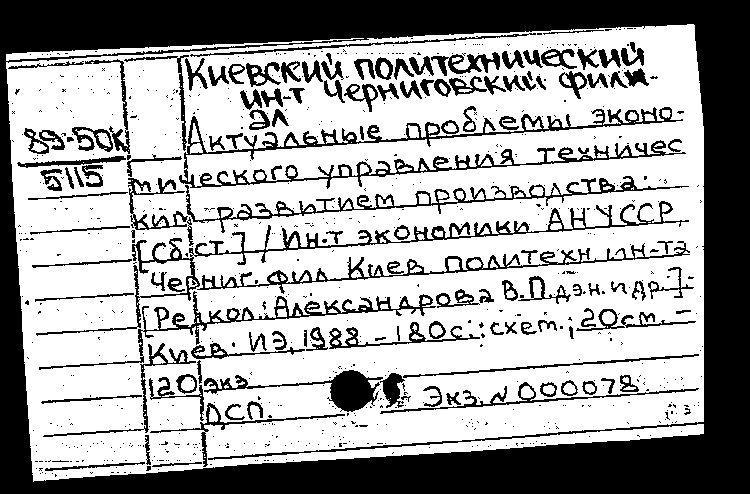 Киевский политехнический
ин-т Черниговский фили-
ал
89-50К
5115
Актуальные проблемы эконо-
мического управления техничес
ким развитием производства:
[Сб.ст.] / Ин-т экономики АН УССР,
Черниг. фил Киев политехн ин-та
[Редкол.: Александрова В.П. д.э.н. и др.].-
Киев: ИЭ, 1988.-180с.:схем.; 20см.-
120 экз
ДСП.
Экз. N 000078